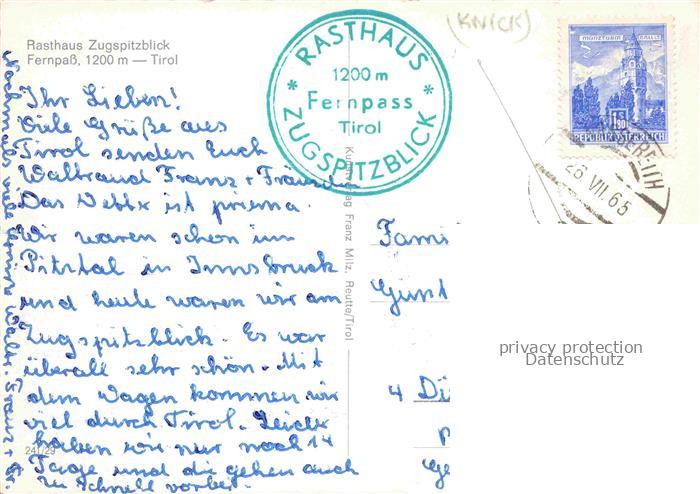 Rasthaus Zugspitzblick
Fernpaß, 1200 m — Tirol
(KNICK)
RASTHAUS
1200 m
Fernpass
Tirol
ZUGSPITZBLICK
MÜNZTURM HALL i. T.
1.50
REPUBLIK ÖSTERREICH
26.VII.65
Ihr Lieben!
Viele Grüße aus
Tirol senden Euch
Waltraud Franz +
Das Wetter ist prima.
Wir waren schon im
Pitztal in Innsbruck
und heute waren wir am
Zugspitzblick. Es war
überall sehr schön. Mit
dem Wagen kommen wir
viel durch Tirol. Leider
haben wir nur noch 14
Tage und die gehen auch
zu schnell vorbei.
Nochmals viele Grüße Waltr. Franz + Fr.
241/29
Kunstverlag Franz Milz, Reutte/Tirol
Fami
Günt
4 Di
privacy protection
Datenschutz